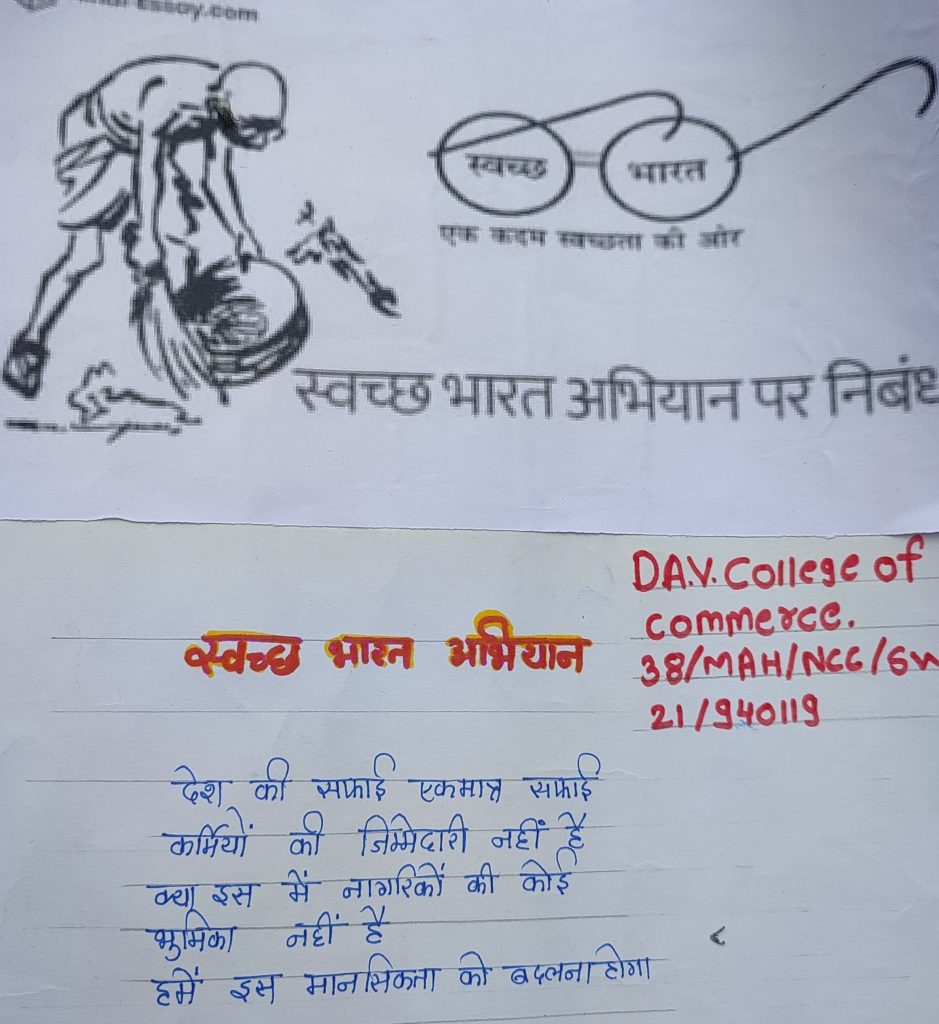 Essay.com
स्वच्छ भारत
एक कदम स्वच्छता की ओर
स्वच्छ भारत अभियान पर निबंध
D.A.V. College of
commerce.
स्वच्छ भारत अभियान
38/MAH/NCC/SW
21/940119
देश की सफाई एकमात्र सफाई
कर्मियों की जिम्मेदारी नहीं है
क्या इस में नागरिकों की कोई
भुमिका नहीं है
हमें इस मानसिकता को बदलना होगा